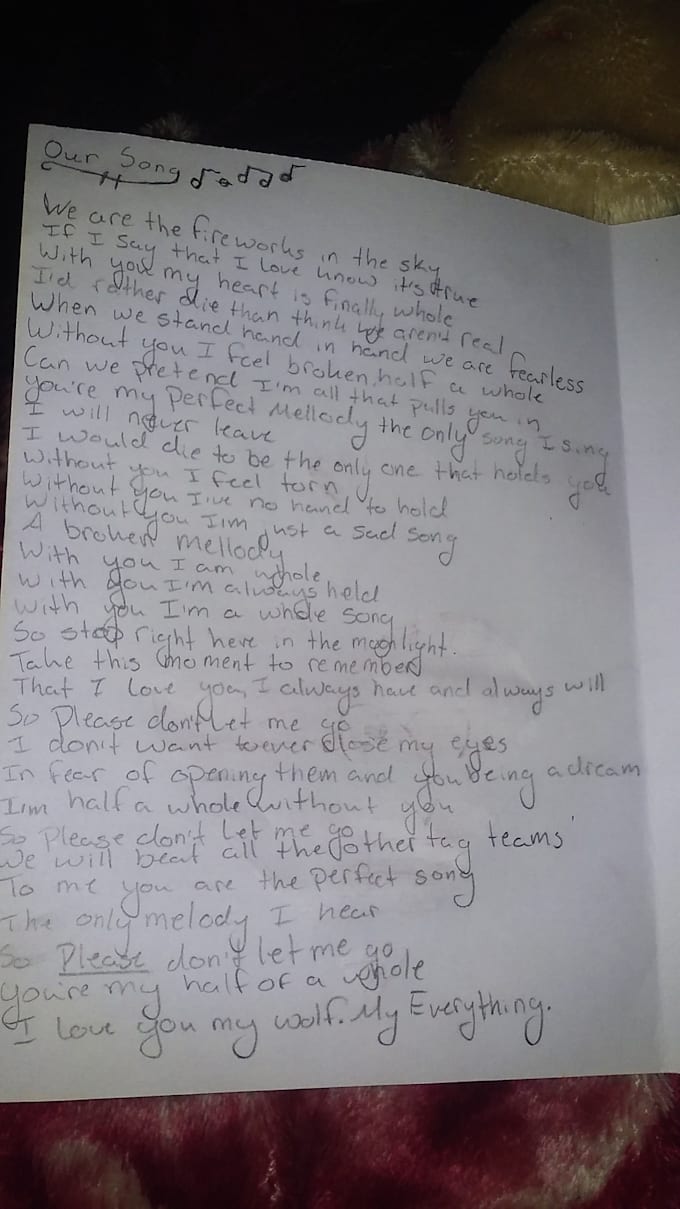 Our Song
We are the fireworks in the sky
If I say that I love know it's true
With you my heart is finally whole
I'd rather die than think we aren't real
When we stand hand in hand we are fearless
Without you I feel broken, half a whole
Can we pretend I'm all that pulls you in
You're my perfect Mellody the only song I sing
I will never leave
I would die to be the only one that holds you
Without you I feel torn
Without you I've no hand to hold
Without you I'm just a sad song
A broken mellody
With you I am whole
With you I'm always held
With you I'm a whole song
So stop right here in the moonlight.
Take this moment to remember
That I love you, I always have and always will
So Please don't let me go
I don't want to ever close my eyes
In fear of opening them and you being a dream
I'm half a whole without you
So Please don't let me go
We will beat all the other tag teams
To me you are the perfect song
The only melody I hear
So Please don't let me go
you're my half of a whole
I love you my wolf. My Everything.